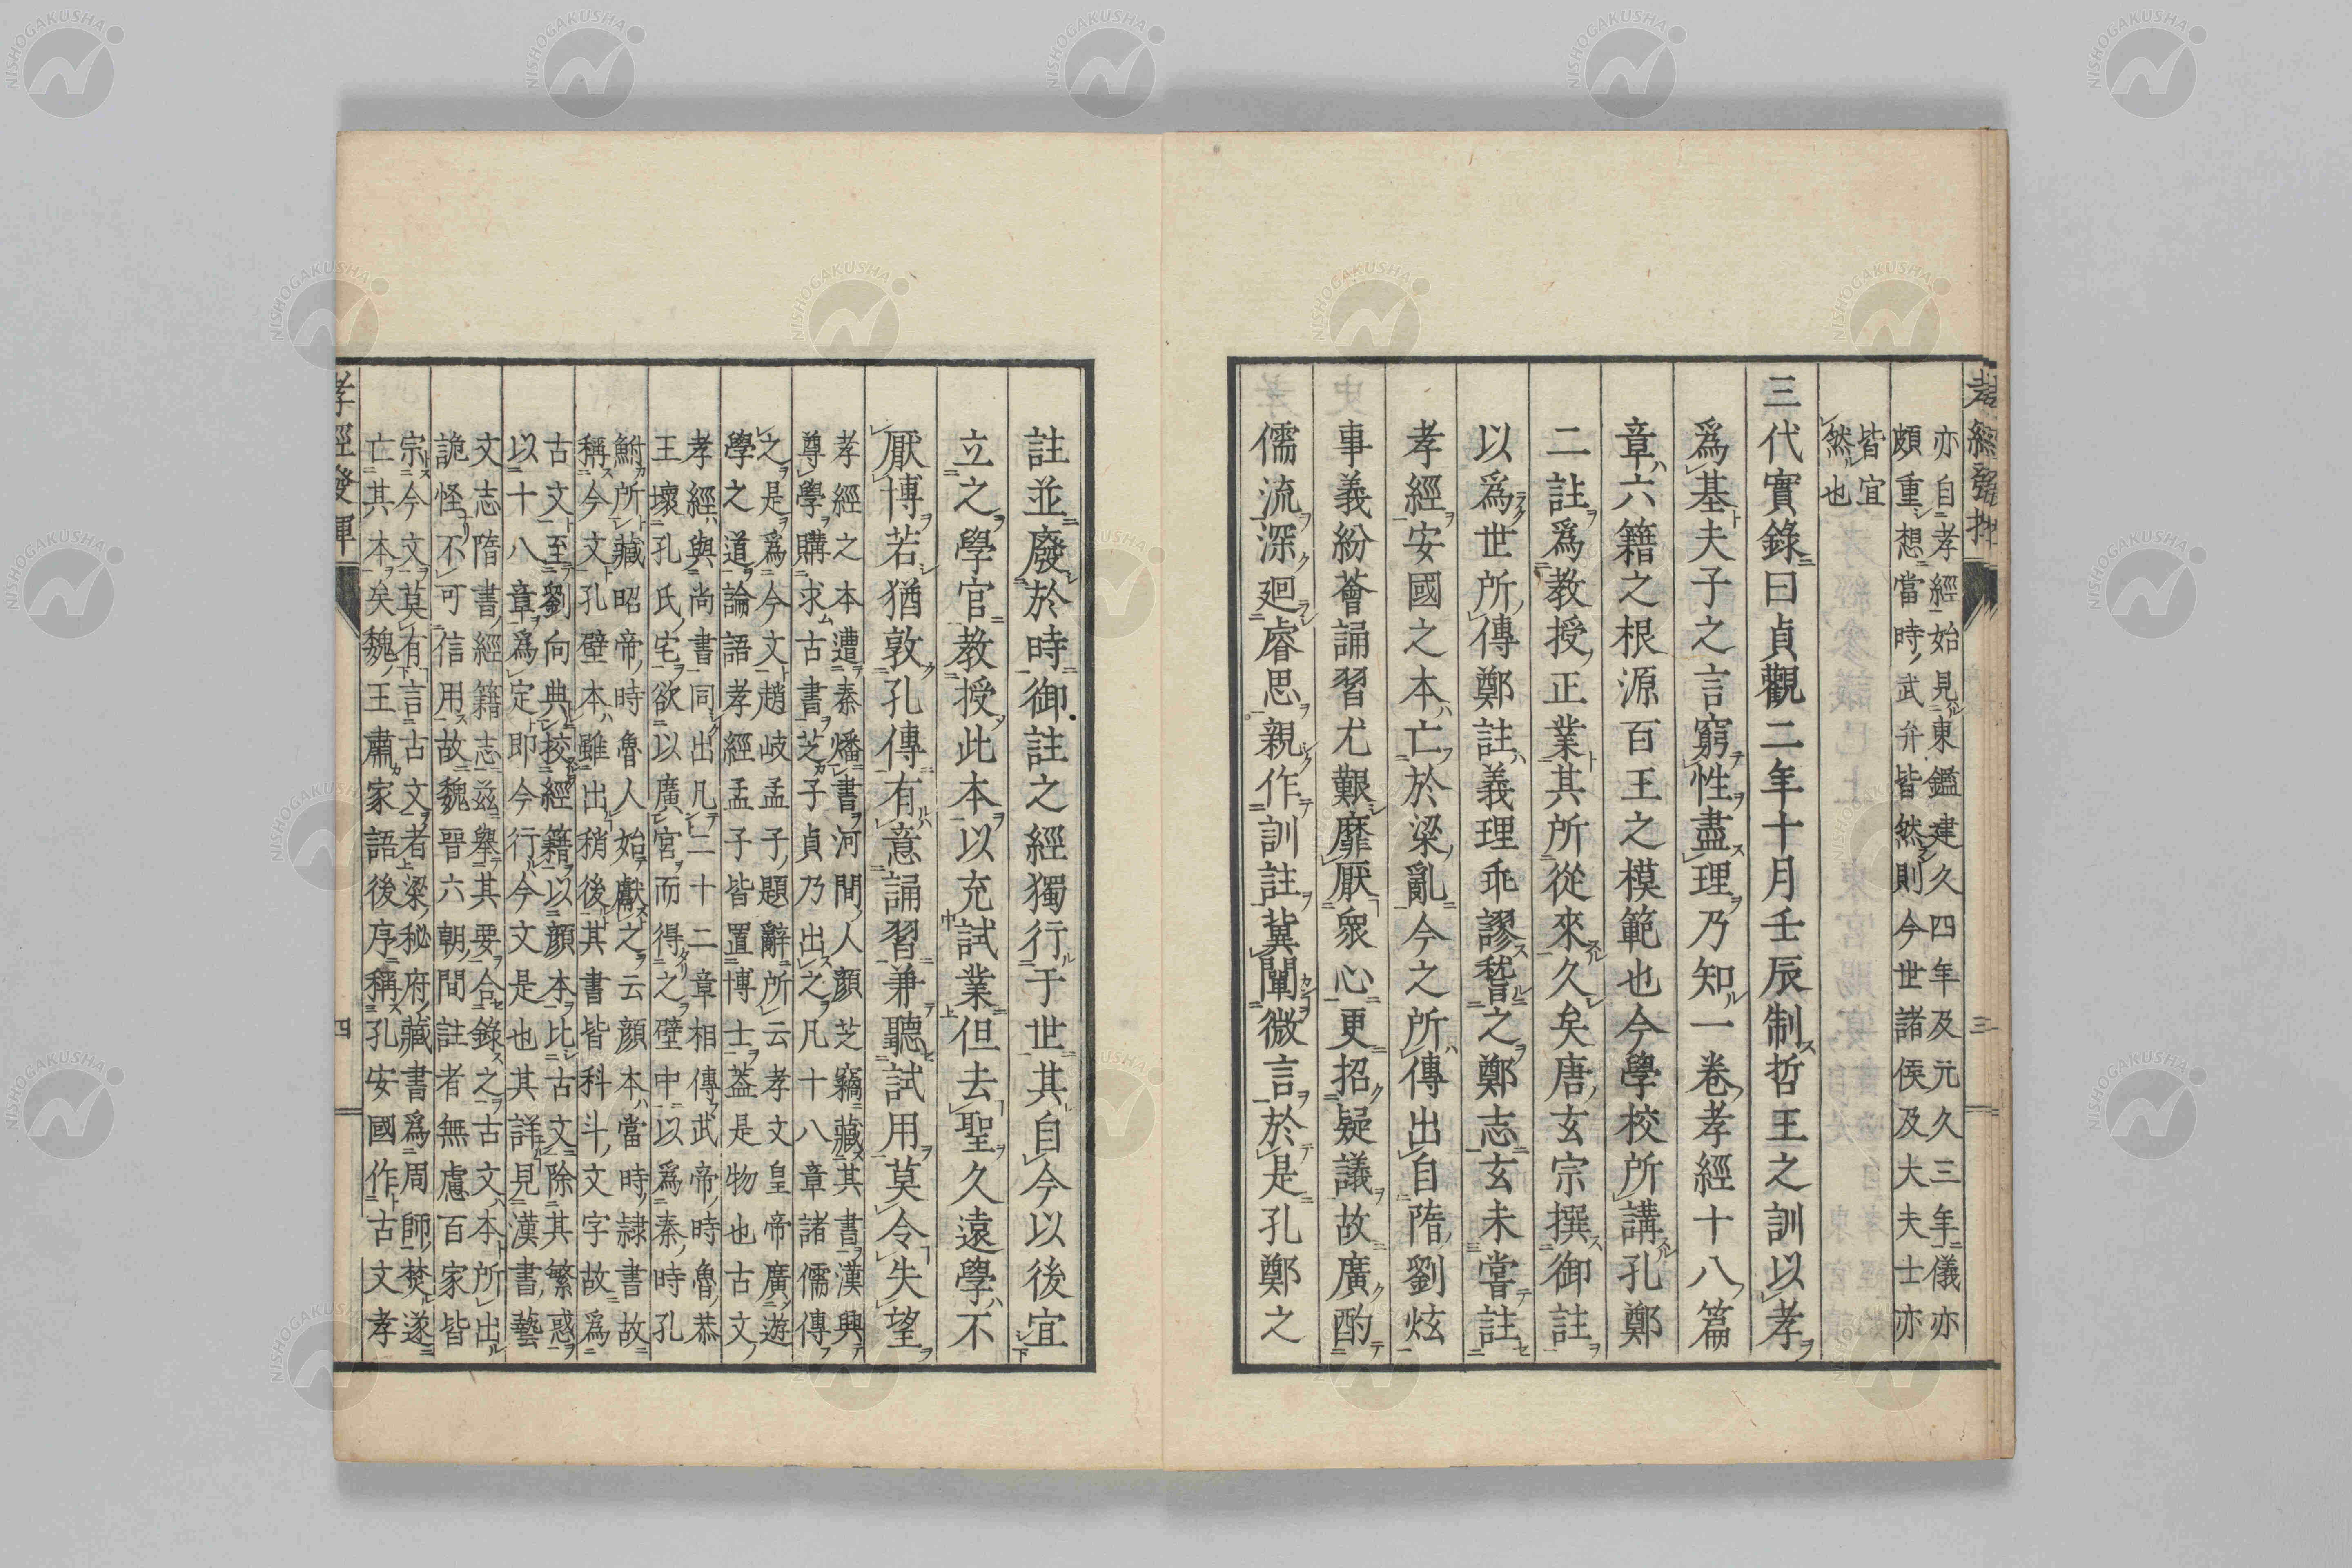 亦自孝經始見東鑑建久四年及元久三年儀亦
頗重想當時武弁皆然則今世諸侯及大夫士亦
皆宜
然也
三代實錄曰貞觀二年十月壬辰制哲王之訓以孝
爲基夫子之言窮性盡理乃知一卷孝經十八篇
章六籍之根源百王之模範也今學校所講孔鄭
二註爲教授正業其所從來久矣唐玄宗撰御註
以爲世所傳鄭註義理乖謬稽之鄭志玄未嘗註
孝經安國之本亡於梁亂今之所傳出自隋劉炫
事義紛薈誦習尤艱靡厭衆心更招疑議故廣酌
儒流深廻睿思親作訓註冀闡微言於是孔鄭之
註並廢於時御註之經獨行于世其自今以後宜
立之學官教授此本以充試業但去聖久遠學不
厭博若猶敦孔傳有意誦習兼聽試用莫令失望
孝經之本遭秦燔書河間人顏芝竊藏其書漢興
尊學購求古書芝子貞乃出之凡十八章諸儒傳
之是爲今文趙岐孟子題辭所云孝文皇帝廣遊
學之道論語孝經孟子皆置博士蓋是物也古文
孝經與尚書同出凡二十二章相傳武帝時魯恭
王壞孔氏宅欲以廣宮而得之壁中以爲秦時孔
鮒所藏昭帝時魯人始獻之云顏本當時隸書故
稱今文孔壁本雖出稍後其書皆科斗文字故爲
古文至劉向典校經籍以顏本比古文除其繁惑
以十八章爲定即今行今文是也其詳見漢書藝
文志隋書經籍志茲舉其要合錄之古文本所出
詭怪不可信用故魏晉六朝間註者無慮百家皆
宗今文莫有言古文者梁秘府藏書爲周師焚遂
亡其本矣魏王肅家語後序稱孔安國作古文孝
孝經發揮
三
四